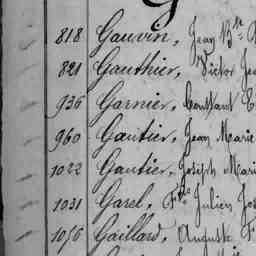 G
818 Gauvin, Jean Bte
821 Gauthier, Victor Je
936 Garnier, Constant
960 Gautier, Jean Marie
1022 Gautier, Joseph Mari
1031 Garel, Fçois Julien Jos
1056 Gaillard, Auguste F